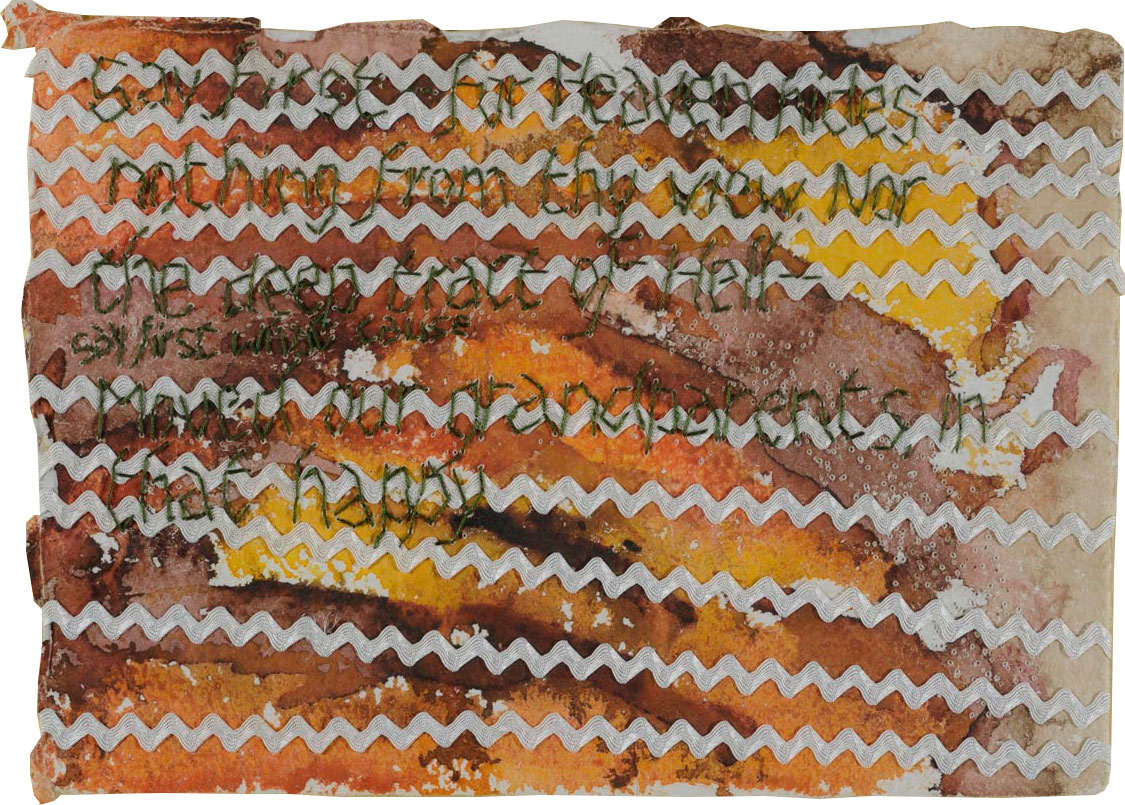 Say first — for Heaven hides
nothing from thy view, Nor
the deep tract of Hell—
say first what cause
moved our grandparents, in
that happy